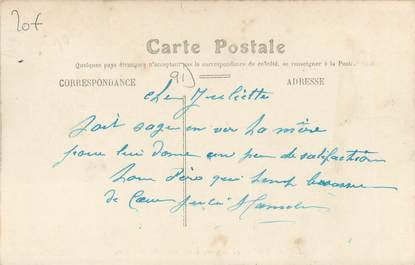 20f
Carte Postale
Quelques pays étrangers n'acceptant pas la correspondance de ce côté, se renseigner à la Poste.
CORRESPONDANCE
91
ADRESSE
Juliette
Soit sage en ver ta mère
pour lui donné un peu de satisfaction
Ton Père qui
de Cœur